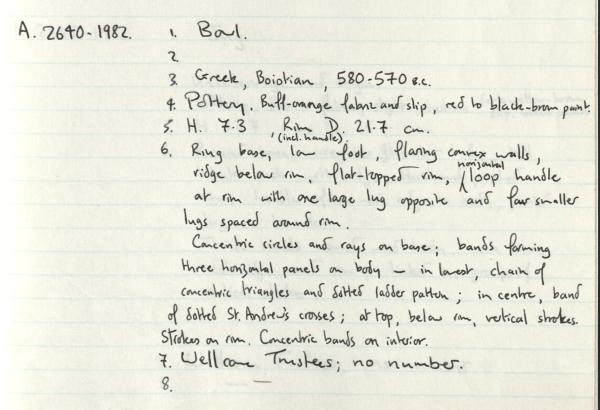 A. 2640-1982. 1. Bowl.
2.
3. Greek, Boiotian, 580-570 B.C.
4. Pottery, Buff-orange fabric and slip, red to black-brown paint.
5. H. 7.3 , Rim D. 21.7 cm.
(incl. handle)
6. Ring base, low foot, flaring convex walls,
ridge below rim, flat-topped rim, horizontal loop handle
at rim with one large lug opposite and four smaller
lugs spaced around rim.
Concentric circles and rays on base; bands forming
three horizontal panels on body – in lowest, chain of
concentric triangles and dotted ladder pattern; in centre, band
of dotted St. Andrew's crosses; at top, below rim, vertical strokes.
Strokes on rim. Concentric bands on interior.
7. Wellcome Trustees; no number.
8. —